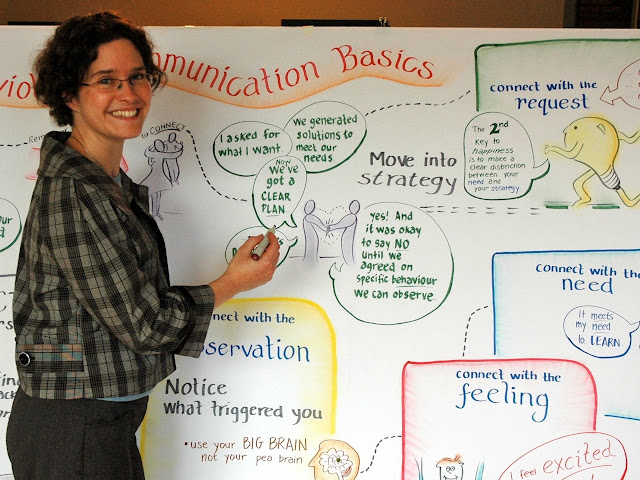 Communication Basics
to CONNECT
I asked for
what I want.
We generated
solutions to
meet our
needs.
NOW
We've
got a
CLEAR
PLAN.
yes! And
it was okay
to say NO
until we
agreed on
specific behaviour
we can observe.
Move into
strategy
connect with the
request
The 2nd
Key to
happiness
is to make a
clear distinction
between your
need and
your strategy
connect with the
need
It meets
my need
to LEARN
connect with the
observation
Notice
what triggered you
• use your BIG BRAIN
not your pea brain
connect with the
feeling
I feel excited